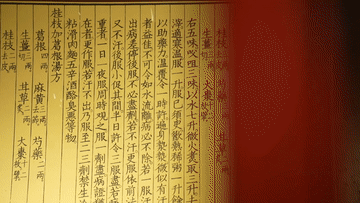 生薑三兩切 大棗
右五味㕮咀三味以水七升微火煮取三升
滓適寒溫服一升服已須臾歠熱稀粥一升餘
以助藥力溫覆令一時許遍身漐漐微似有汗
者益佳不可令如水流離病必不除若一服汗
出病差停後服不必盡劑若不汗更服依前法
又不汗後服小促其間半日許令三服盡若病
重者一日一夜服周時觀之服一劑盡病證猶
在者更作服若汗不出乃服至二三劑禁生冷
粘滑肉麵五辛酒酪臭惡等物
桂枝加葛根湯方
葛根四兩 麻黃去節 芍藥二兩
生薑三兩切 甘草二兩 大棗
桂枝去皮